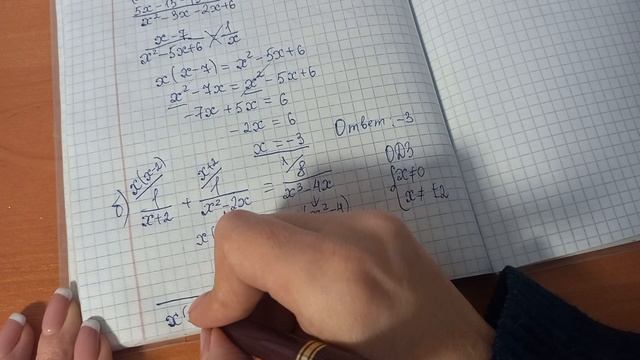 5x-15-
x²-3x-2x+6
x-7
x²-5x+6
1
x
x(x-7) = x²-5x+6
x²-7x = x²-5x+6
-7x+5x = 6
-2x = 6
x = -3
Ответ: -3
x(x-2) x+2 1
б) 1/x+2 + 1/x²-2x = 8/x³-4x
ОДЗ
{x≠0
x≠±2
x²-4)
x(
x(